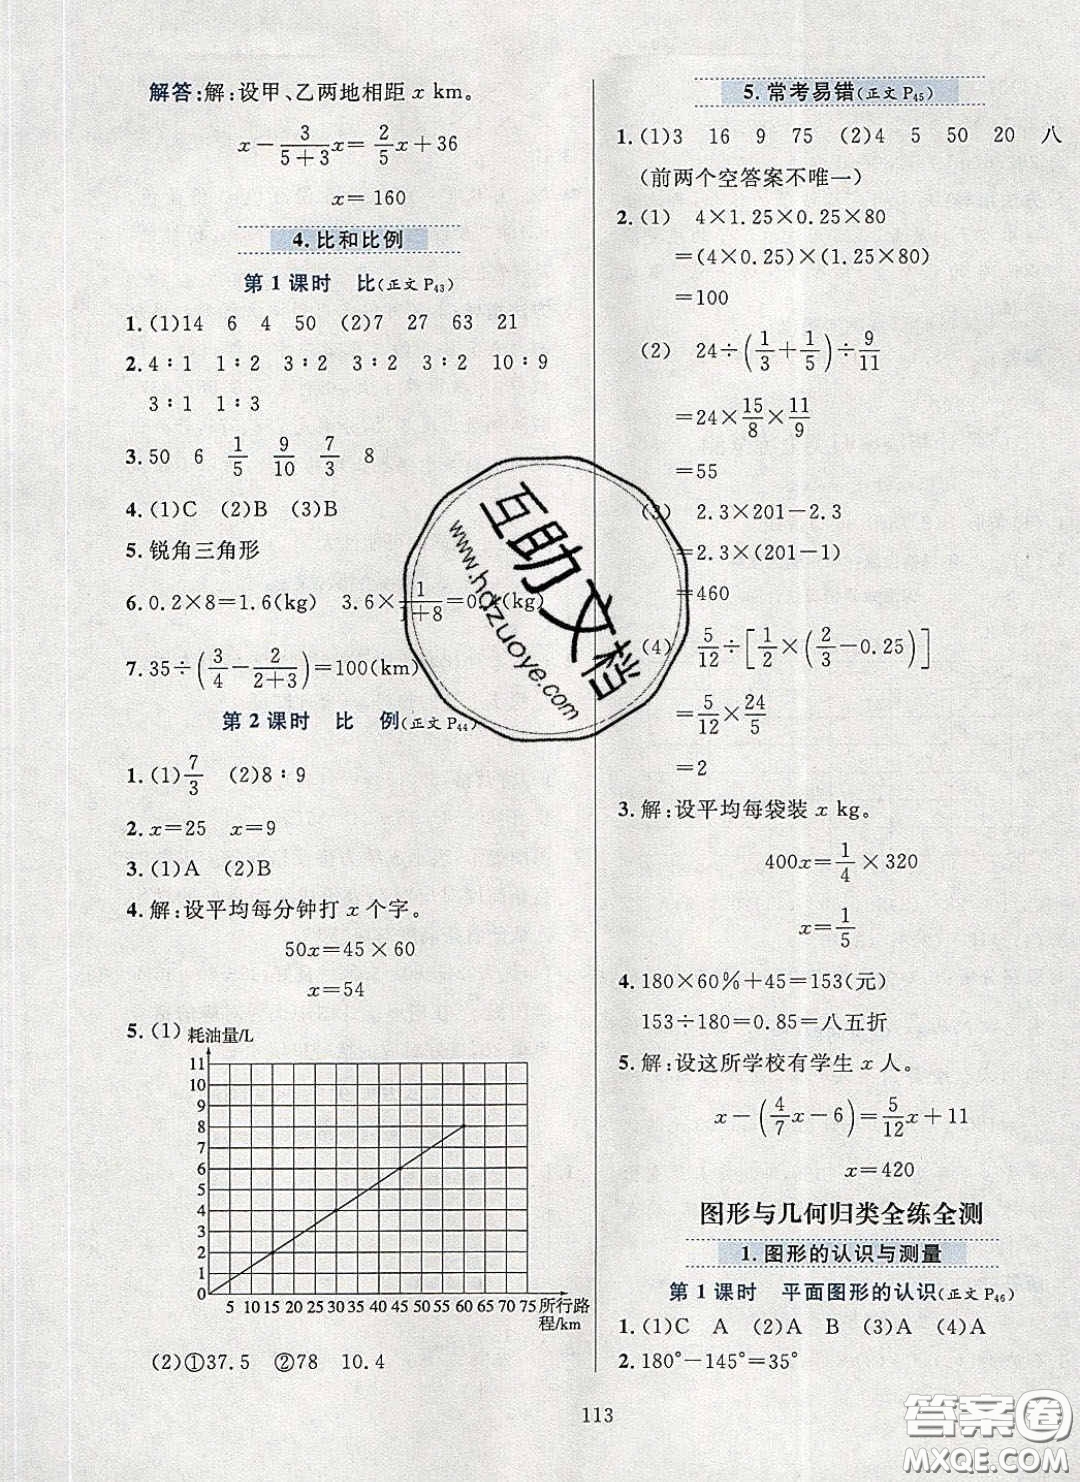 解答:解:设甲、乙两地相距 x km。
x − 3/(5+3) x = 2/5 x + 36
x = 160
4. 比和比例
第 1 课时 比(正文 P43)
1. (1)14 6 4 50 (2)7 27 63 21
2. 4∶1 1∶2 3∶2 3∶2 3∶2 10∶9
3∶1 1∶3
3. 50 6 1/5 9/10 7/3 8
4. (1)C (2)B (3)B
5. 锐角三角形
6. 0.2×8=1.6(kg) 3.6× 1/(1+8) =0. (kg)
7. 35÷(3/4 − 2/(2+3))=100(km)
第 2 课时 比 例(正文 P44)
1. (1)7/3 (2)8∶9
2. x=25 x=9
3. (1)A (2)B
4. 解:设平均每分钟打 x 个字。
50x=45×60
x=54
5. (1)
耗油量/L
11
10
9
8
7
6
5
4
3
2
1
0
5 10 15 20 25 30 35 40 45 50 55 60 65 70 75 所行路
程/km
(2)①37.5 ②78 10.4
5. 常考易错(正文 P45)
1. (1)3 16 9 75 (2)4 5 50 20 八
(前两个空答案不唯一)
2. (1) 4×1.25×0.25×80
=(4×0.25)×(1.25×80)
=100
(2) 24÷(1/3+1/5)÷9/11
=24×15/8×11/9
=55
(3) 2.3×201−2.3
=2.3×(201−1)
=460
(4) 5/12÷[1/2×(2/3−0.25)]
=5/12×24/5
=2
3. 解:设平均每袋装 x kg。
400x=1/4×320
x=1/5
4. 180×60%+45=153(元)
153÷180=0.85=八五折
5. 解:设这所学校有学生 x 人。
x−(4/7x−6)=5/12x+11
x=420
图形与几何归类全练全测
1. 图形的认识与测量
第 1 课时 平面图形的认识(正文 P46)
1. (1)C A (2)A B (3)A A (4)A
2. 180°−145°=35°
113
互助文档
www.hdzuoye.com
答案圈
MXQE.COM